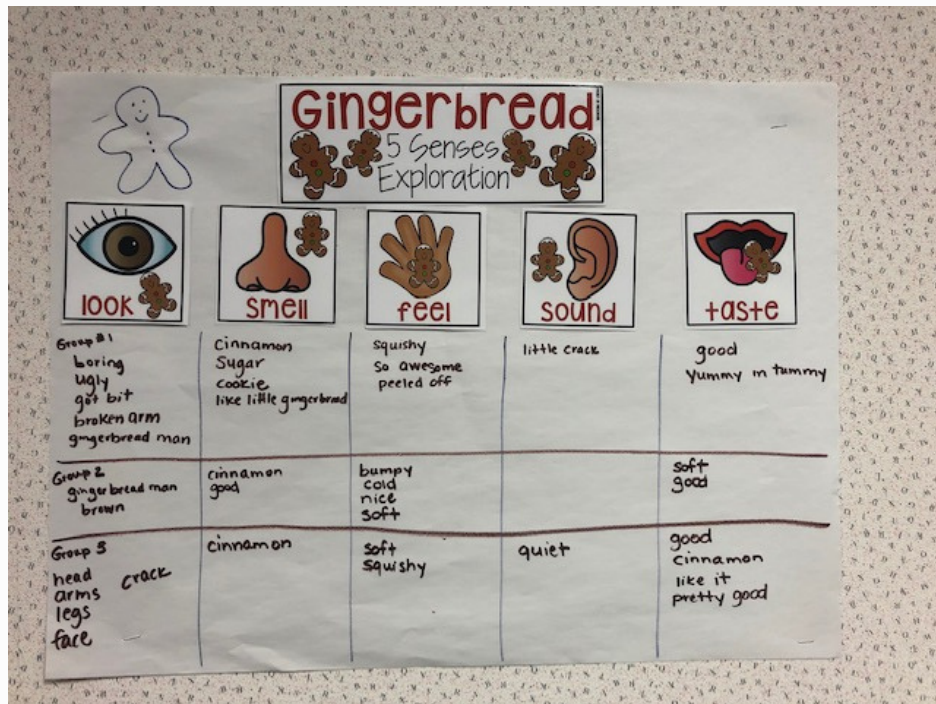 Gingerbread
5 Senses
Exploration
look
smell
feel
sound
taste
Group #1
boring
ugly
got bit
broken arm
gingerbread man
cinnamon
sugar
cookie
like little gingerbread
squishy
so awesome
peeled off
little crack
good
yummy in tummy
Group 2
gingerbread man
brown
cinnamon
good
bumpy
cold
nice
soft
soft
good
Group 3
head
arms
legs
face
crack
cinnamon
soft
squishy
quiet
good
cinnamon
like it
pretty good